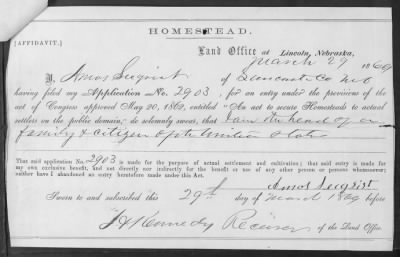 HOMESTEAD.
[AFFIDAVIT.]
Land Office at Lincoln, Nebraska,
March 29 1869
I, Amos Seeqrist of Lancaster Co Neb
having filed my Application No. 2903, for an entry under the provisions of the
act of Congress approved May 20, 1862, entitled "An act to secure Homesteads to actual
settlers on the public domain," do solemnly swear, that I am the head of a
family & citizen of the United States
That said application No. 2903 is made for the purpose of actual settlement and cultivation; that said entry is made for
my own exclusive benefit, and not directly nor indirectly for the benefit or use of any other person or persons whomsoever;
neither have I abandoned an entry heretofore made under this Act.
Amos Seeqrist
Sworn to and subscribed this 29th day of March 1869 before
Kennedy Receiver
of the Land Office.